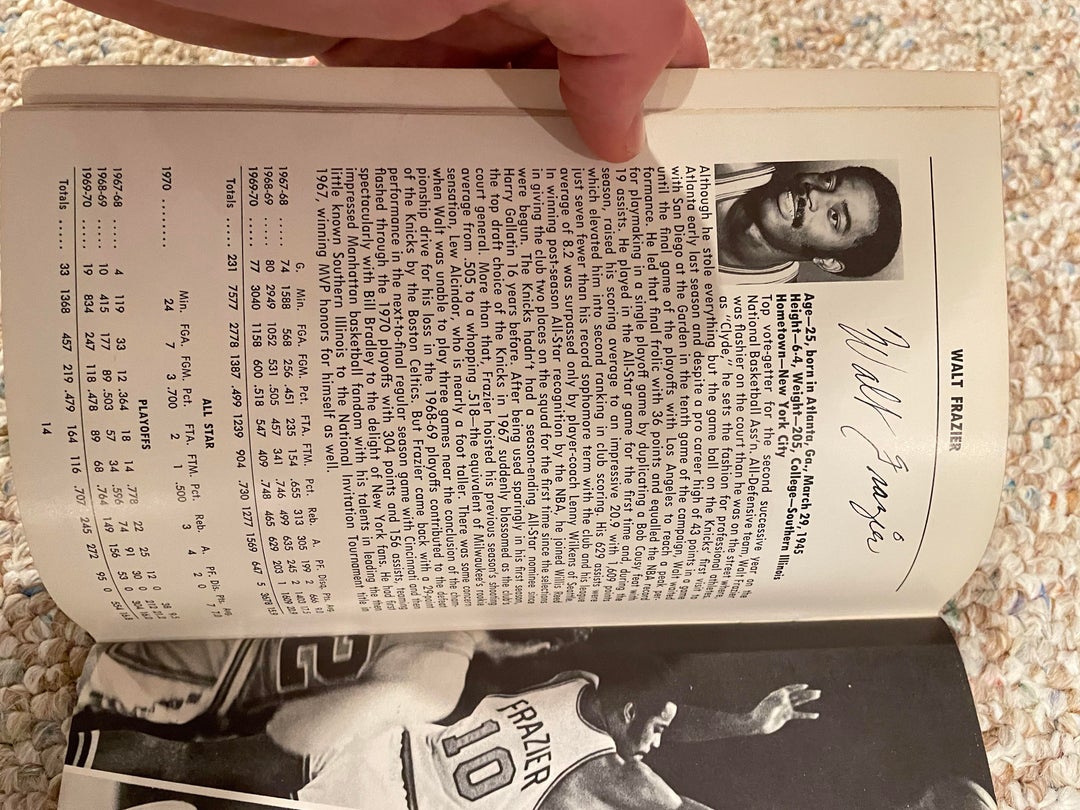 WALT FRAZIER
Walt Frazier
Age—25, born in Atlanta, Ga., March 29, 1945
Height—6-4, Weight—205, College—Southern Illinois
Hometown—New York City
Top vote-getter for the second successive year on the
National Basketball Ass'n. All-Defensive team, Walt Frazier
was flashier on the court than he was on the street where,
as "Clyde," he sets the fashion for professional athletes.
Although he stole everything but the game ball on the Knicks' first visit to
Atlanta early last season and despite a pro career high of 43 points in a game
with San Diego at the Garden in the tenth game of the campaign, Walt waited
until the final game of the playoffs with Los Angeles to reach a peak per-
formance. He led that final frolic with 36 points and equalled the NBA record
for playmaking in a single playoff game by duplicating a Bob Cousy feat with
19 assists. He played in the All-Star game for the first time and, during the
season, raised his scoring average to an impressive 20.9 with 1,609 points
which elevated him into second ranking in club scoring. His 629 assists were
just seven fewer than his record sophomore term with the club and his league
average of 8.2 was surpassed only by player-coach Lenny Wilkens of Seattle.
In winning post-season All-Star recognition by the NBA, he joined Willis Reed
in giving the club two places on the squad for the first time since the selections
were begun. The Knicks hadn't had a season-ending All-Star nominee since
Harry Gallatin 16 years before. After being used sparingly in his first season,
the top draft choice of the Knicks in 1967 suddenly blossomed as the club's
court general. More than that, Frazier hoisted his previous season's shooting
average from .505 to a whopping .518—the equivalent of Milwaukee's rookie
sensation, Lew Alcindor, who is nearly a foot taller. There was some concern
when Walt was unable to play three games near the conclusion of the cham-
pionship drive for his loss in the 1968-69 playoffs contributed to the defeat
of the Knicks by the Boston Celtics. But Frazier came back with a 29-point
performance in the next-to-final regular season game with Cincinnati and then
flashed through the 1970 playoffs with 304 points and 156 assists, teaming
spectacularly with Bill Bradley to the delight of New York fans. He had first
impressed Manhattan basketball fandom with his talents in leading the then
little known Southern Illinois to the National Invitation Tournament title in
1967, winning MVP honors for himself as well.
G. Min. FGA. FGM. Pct. FTA. FTM. Pct. Reb. A. PF. Disq. Pts. Avg.
1967-68 ...... 74 1588 568 256 .451 235 154 .655 313 305 199 2 666 9.0
1968-69 ...... 80 2949 1052 531 .505 457 341 .746 499 635 245 2 1403 17.5
1969-70 ...... 77 3040 1158 600 .518 547 409 .748 465 629 203 1 1609 20.9
Totals ...... 231 7577 2778 1387 .499 1239 904 .730 1277 1569 647 5 3678 15.9
ALL STAR
Min. FGA. FGM. Pct. FTA. FTM. Pct. Reb. A. PF. Dis. Pts. Avg.
1970 ...... 24 7 3 .700 2 1 .500 3 4 2 0 7 7.0
PLAYOFFS
1967-68 ...... 4 119 33 12 .364 18 14 .778 22 25 12 0 38 9.5
1968-69 ...... 10 415 177 89 .503 57 34 .596 74 91 30 0 212 21.2
1969-70 ...... 19 834 247 118 .478 89 68 .764 149 156 53 0 304 16.0
Totals ...... 33 1368 457 219 .479 164 116 .707 245 272 95 0 554 16.8
14
FRAZIER
10
2